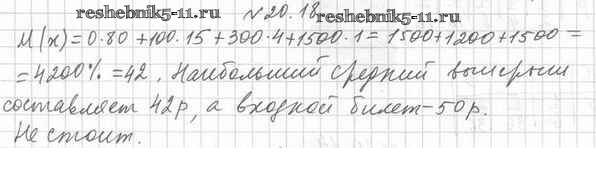 reshebnik5-11.ru № 20.18 reshebnik5-11.ru
M(x)=0·80+100·15+300·4+1500·1=1500+1200+1500=
=4200%=42. Наибольший средний выигрыш
составляет 42р, а входной билет-50р.
Не стоит.